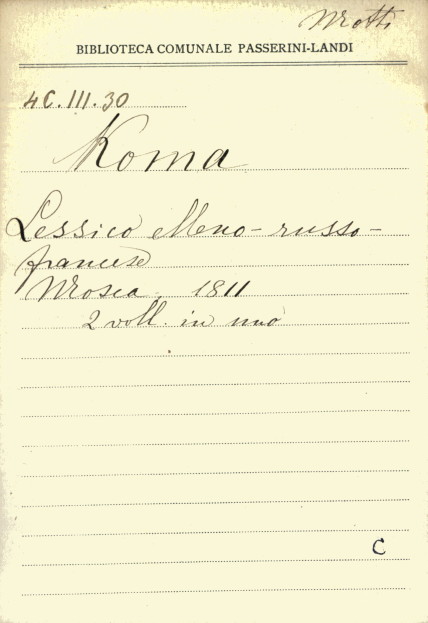 Motti
BIBLIOTECA COMUNALE PASSERINI-LANDI
4C.III.30
Koma
Lessico elleno-russo-
francese
Mosca 1811
2 voll. in uno
C